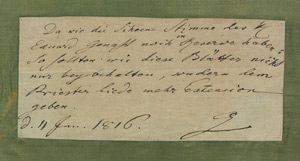 Da wir die schoene Stimme des H
Eduard Genast noch in Reserve haben;
so sollten wir diese Blätter nicht
nur beybehalten, sondern dem
Priester liede mehr Extension
geben.
d. 11 Jan. 1816. G